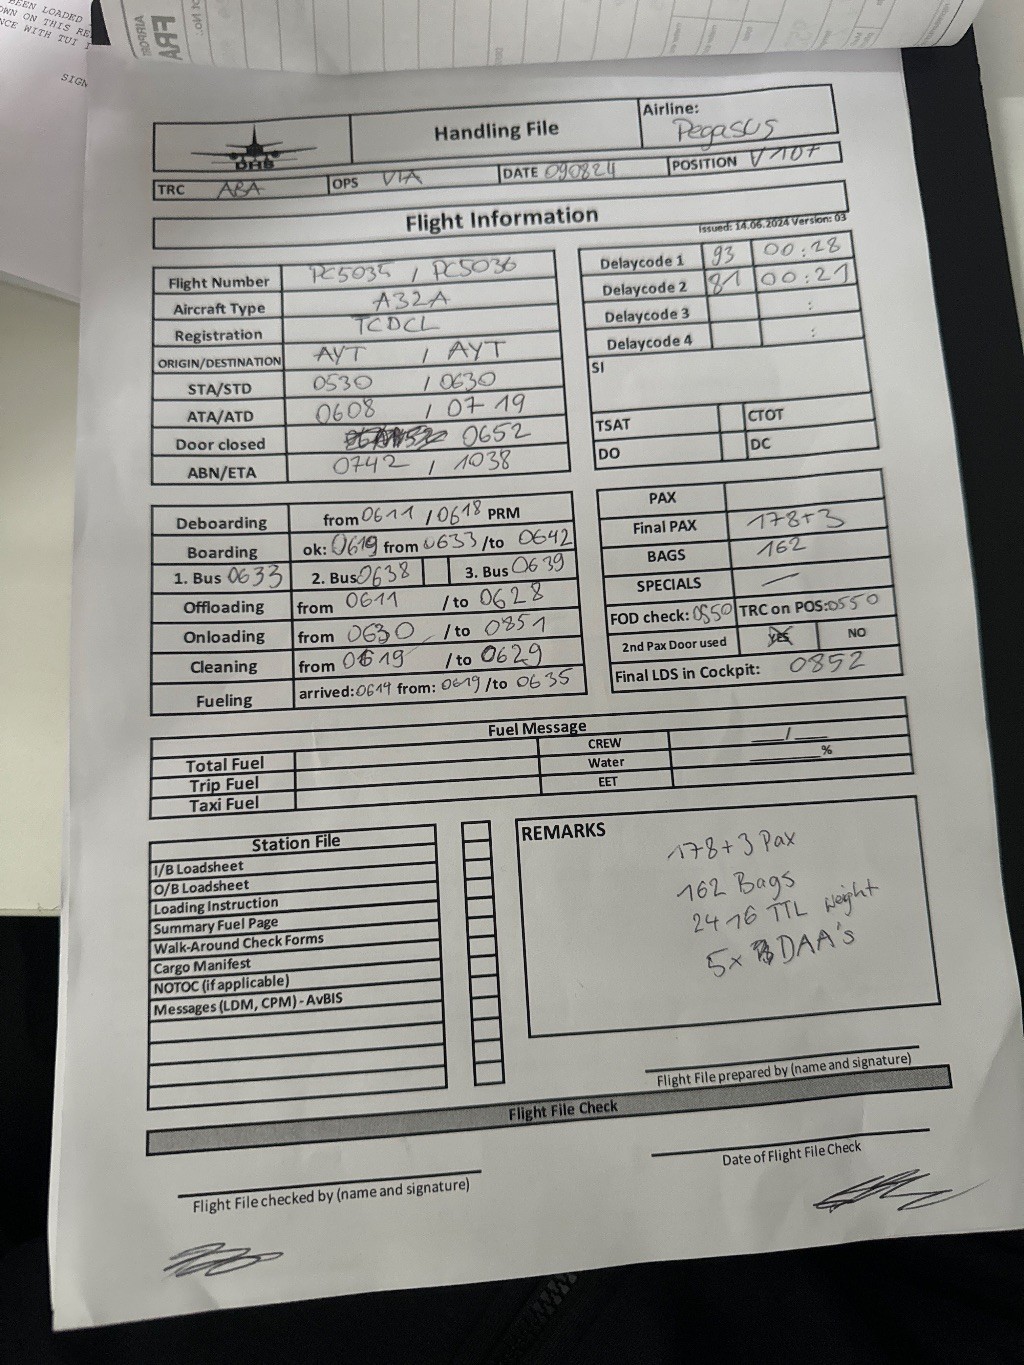 BEEN LOADED
OWN ON THIS RE
NCE WITH TUI
SIGN
AIRPORT
FRA
Handling File
Airline:
Pegasus
DHS
TRC ABA
OPS VIA
DATE 090824
POSITION V107
Flight Information
Issued: 14.06.2024 Version: 03
Flight Number PC5035 / PC5036
Aircraft Type A32A
Registration TCDCL
ORIGIN/DESTINATION AYT / AYT
STA/STD 0530 / 0630
ATA/ATD 0608 / 0719
Door closed 0652
ABN/ETA 0742 / 1038
Delaycode 1 93 00:28
Delaycode 2 81 00:21
Delaycode 3 :
Delaycode 4 :
SI
TSAT CTOT
DO DC
Deboarding from 0611 / 0618 PRM
Boarding ok: 0619 from 0633 /to 0642
1. Bus 0633 2. Bus 0638 3. Bus 0639
Offloading from 0611 /to 0628
Onloading from 0630 /to 0851
Cleaning from 0619 /to 0629
Fueling arrived: 0619 from: 0619 /to 0635
PAX
Final PAX 178+3
BAGS 162
SPECIALS —
FOD check: 0550 TRC on POS: 0550
2nd Pax Door used YES NO
Final LDS in Cockpit: 0852
Fuel Message
Total Fuel CREW ___/___
Trip Fuel Water ______%
Taxi Fuel EET
Station File
I/B Loadsheet
O/B Loadsheet
Loading Instruction
Summary Fuel Page
Walk-Around Check Forms
Cargo Manifest
NOTOC (if applicable)
Messages (LDM, CPM) - AvBIS
REMARKS
178+3 Pax
162 Bags
2416 TTL Weight
5x DAA's
Flight File prepared by (name and signature)
Flight File Check
Date of Flight File Check
Flight File checked by (name and signature)